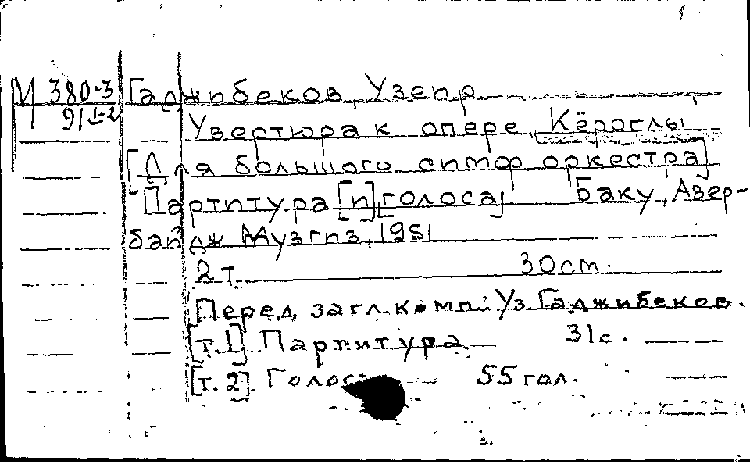 М 380-3 Гаджибеков, Узеир
9/1-2 Увертюра к опере Кёроглы
[Для большого симф оркестра]
Партитура [и] [голоса] Баку, Азер-
байдж Музгиз, 1951
2 т. 30 см.
Перед загл. комп: Уз. Гаджибеков.
[т. 1] Партитура 31 с.
[т. 2] Голоса 55 гол.